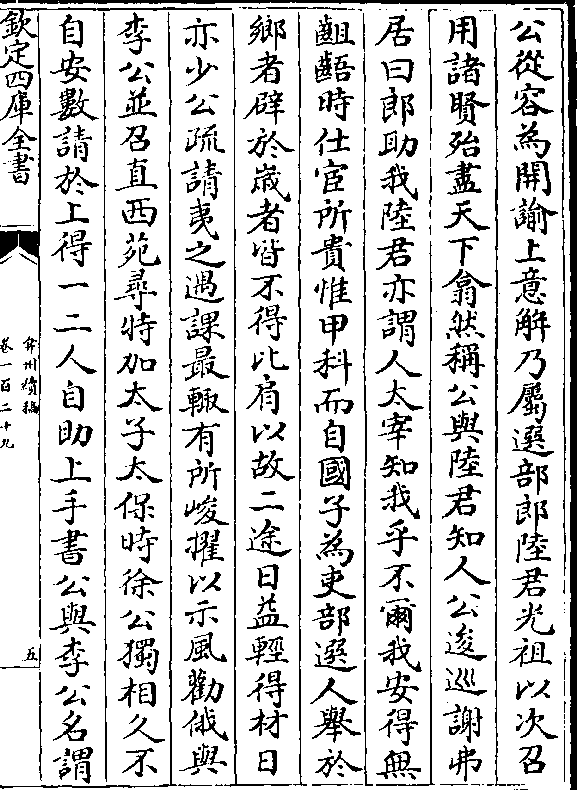 公從容為開諭上意解乃屬選部郎陸君光祖以次召
用諸賢殆盡天下翕然稱公與陸君知人公逡巡謝弗
居曰郎助我陸君亦謂人太宰知我乎不爾我安得無
齟齬時仕宦所貴惟甲科而自國子為吏部選人舉於
鄉者辟於嵗者皆不得比肩以故二途日益輕得材日
亦少公疏請夷之遇課最輙有所峻擢以示風勸俄與
李公並召直西苑尋特加太子太保時徐公獨相久不
自安數請於上得一二人自助上手書公與李公名謂
欽定四庫全書
弇州續稿
卷一百二十九
五